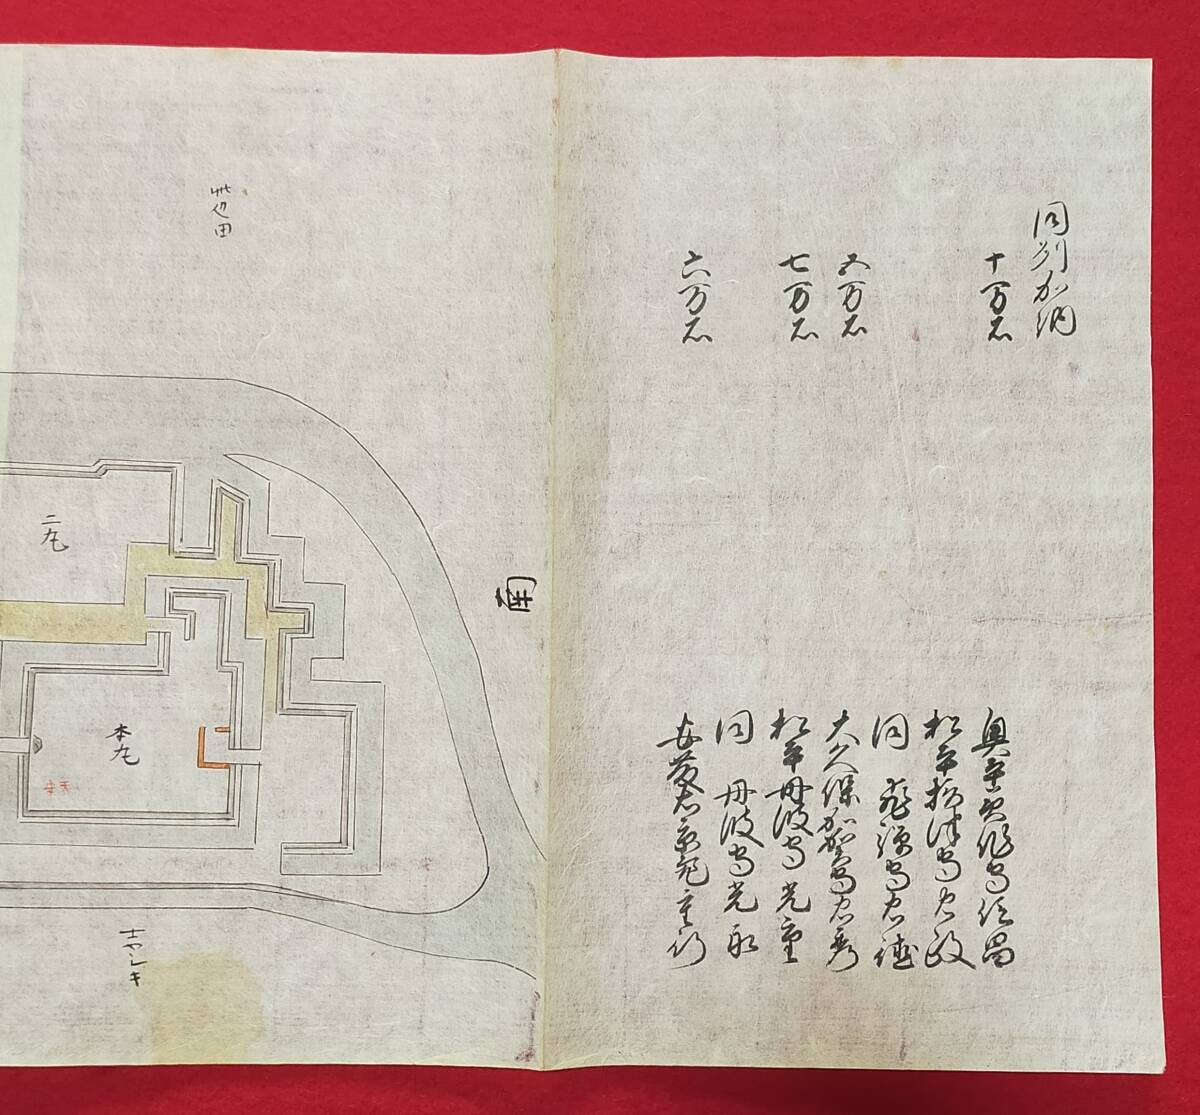 同州加納
十万石 奥平美作守信昌
松平摂津守忠政
同 飛騨守忠
五万石 大久保加賀守忠
七万石 松平丹波守光重
同 丹波守光永
六万石 安藤右京亮重行
南
此辺田
二丸
本丸
天守
士ヤシキ